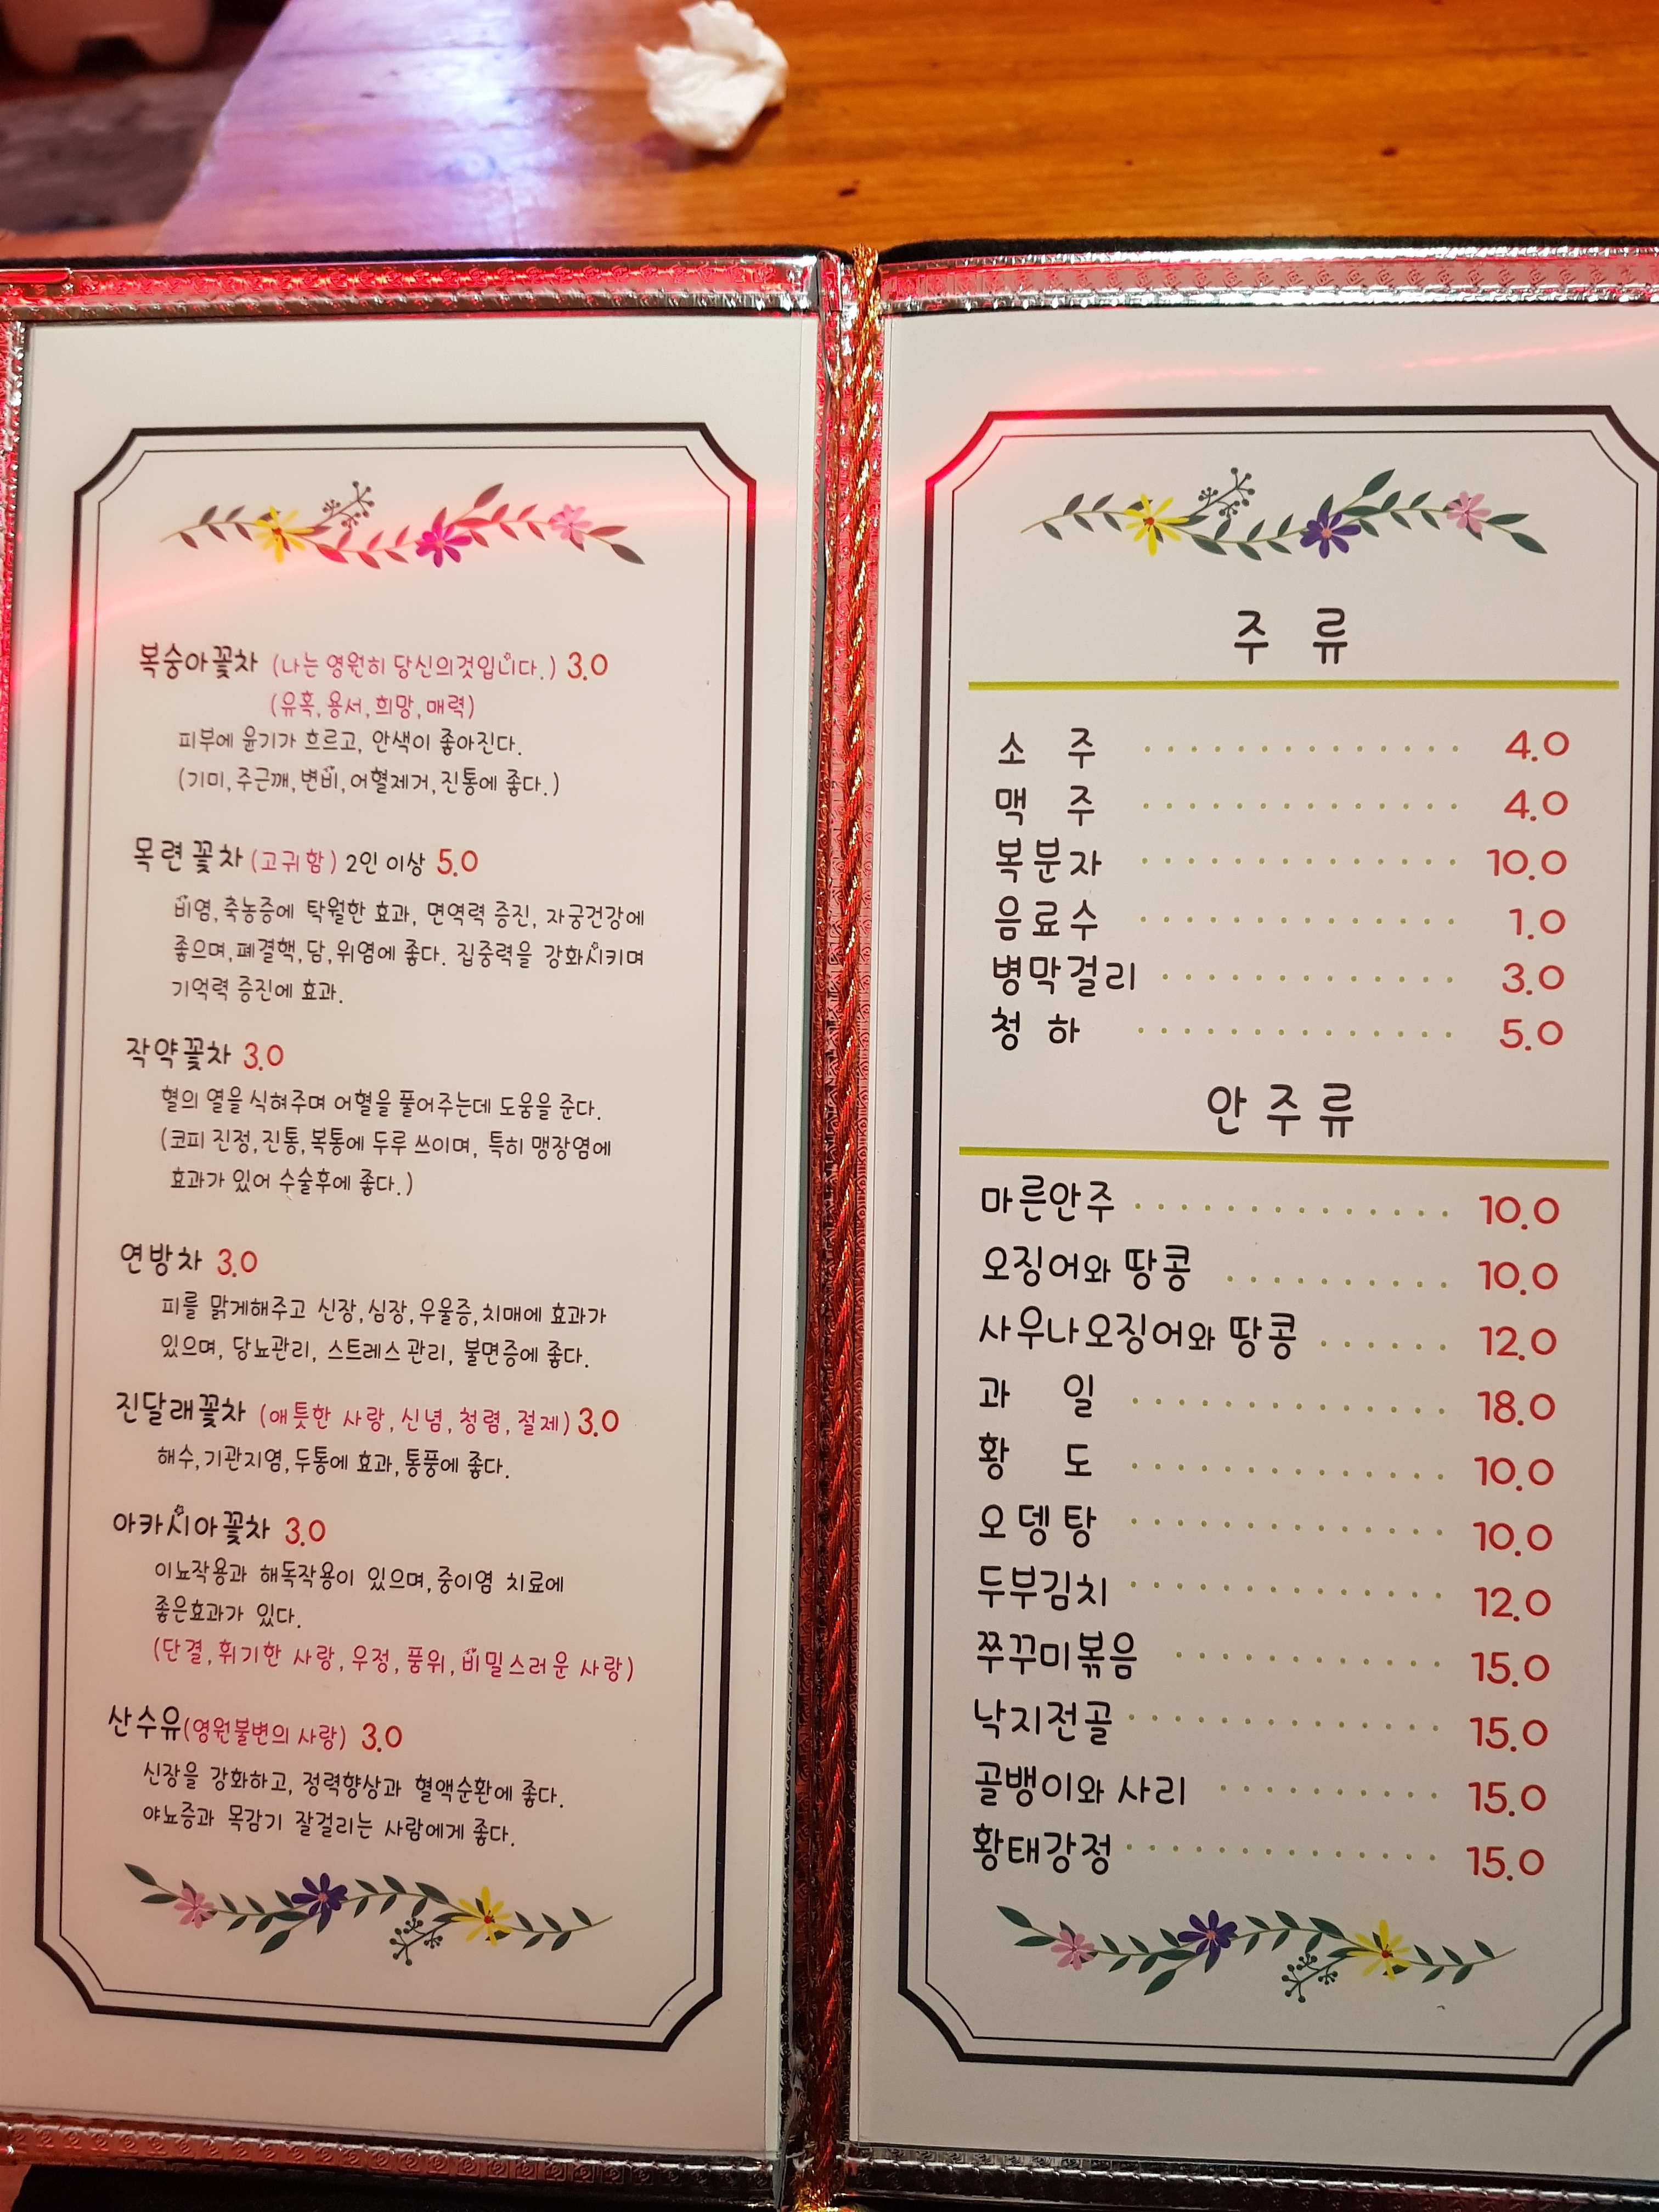 복숭아꽃차 (나는 영원히 당신의것입니다.) 3.0
(유혹, 용서, 희망, 매력)
피부에 윤기가 흐르고, 안색이 좋아진다.
(기미, 주근깨, 변비, 어혈제거, 진통에 좋다.)
목련꽃차 (고귀함) 2인 이상 5.0
비염, 축농증에 탁월한 효과, 면역력 증진, 자궁건강에
좋으며, 폐결핵, 담, 위염에 좋다. 집중력을 강화시키며
기억력 증진에 효과.
작약꽃차 3.0
혈의 열을 식혀주며 어혈을 풀어주는데 도움을 준다.
(코피 진정, 진통, 복통에 두루 쓰이며, 특히 맹장염에
효과가 있어 수술후에 좋다.)
연방차 3.0
피를 맑게해주고 신장, 심장, 우울증, 치매에 효과가
있으며, 당뇨관리, 스트레스 관리, 불면증에 좋다.
진달래꽃차 (애틋한 사랑, 신념, 청렴, 절제) 3.0
해수, 기관지염, 두통에 효과, 통풍에 좋다.
아카시아꽃차 3.0
이뇨작용과 해독작용이 있으며, 중이염 치료에
좋은효과가 있다.
(단결, 휘기한 사랑, 우정, 품위, 비밀스러운 사랑)
산수유(영원불변의 사랑) 3.0
신장을 강화하고, 정력향상과 혈액순환에 좋다.
야뇨증과 목감기 잘걸리는 사람에게 좋다.
주 류
소 주 4.0
맥 주 4.0
복분자 10.0
음료수 1.0
병막걸리 3.0
청 하 5.0
안주류
마른안주 10.0
오징어와 땅콩 10.0
사우나오징어와 땅콩 12.0
과 일 18.0
황 도 10.0
오뎅탕 10.0
두부김치 12.0
쭈꾸미볶음 15.0
낙지전골 15.0
골뱅이와 사리 15.0
황태강정 15.0